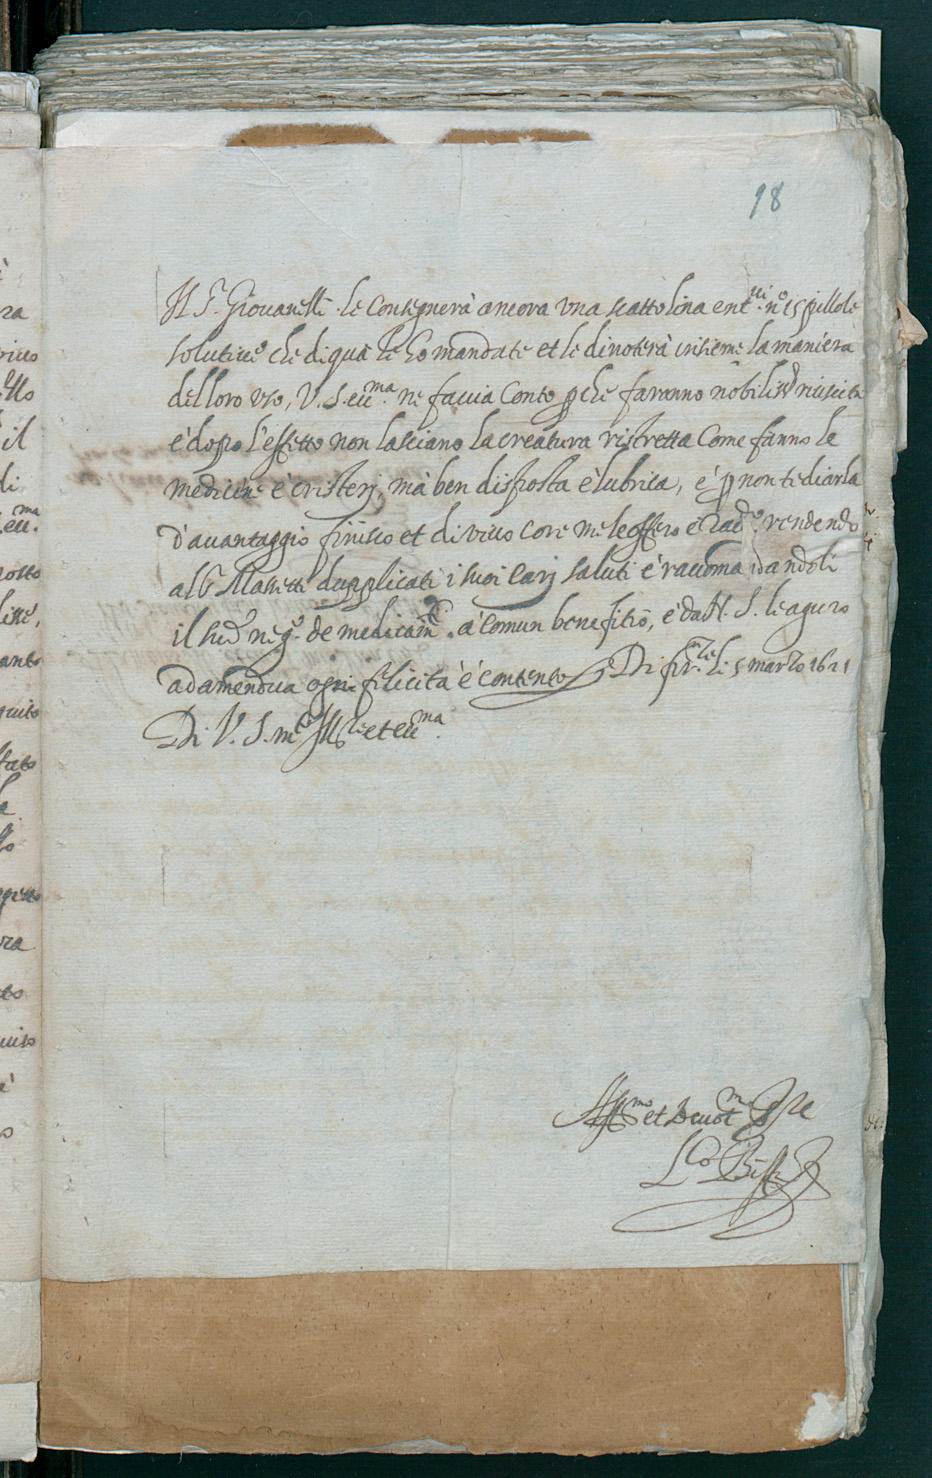 98
Il S.r Giovanelli le Consegnerà ancora una scattolina entrovi n.o 15 pillole
solutive che di quà le ho mandate et le dinoterà insieme la maniera
delloro uso, V. S. ecc.ma ne faccia Conto p che faranno nobiliss.a riuscita
è dopo l'effetto non lasciano la creatura ristretta Come fanno le
medicine è cristerj, mà ben disposta è lubrica, è p non tediarla
d'avantaggio finisco et di vivo core me le offero è rendendo
al S.r Massetti dupplicati i suoi Carj saluti è raccoma dandoli
il sud.o neg.o de medicam.ti à Comun benefitio, è da N. S. le aguro
adamendua ogni felicità è contento Di fir.ze li 5 marzo 1621
Di V. S. m.to Ill.re et ecc.ma
Aff.mo et Devot.mo